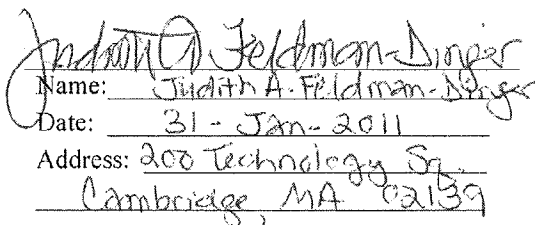 Judith A Feldman-Dinger
Name: Judith A. Feldman-Dinger
Date: 31-Jan-2011
Address: 200 Technology Sq.
Cambridge, MA 02139